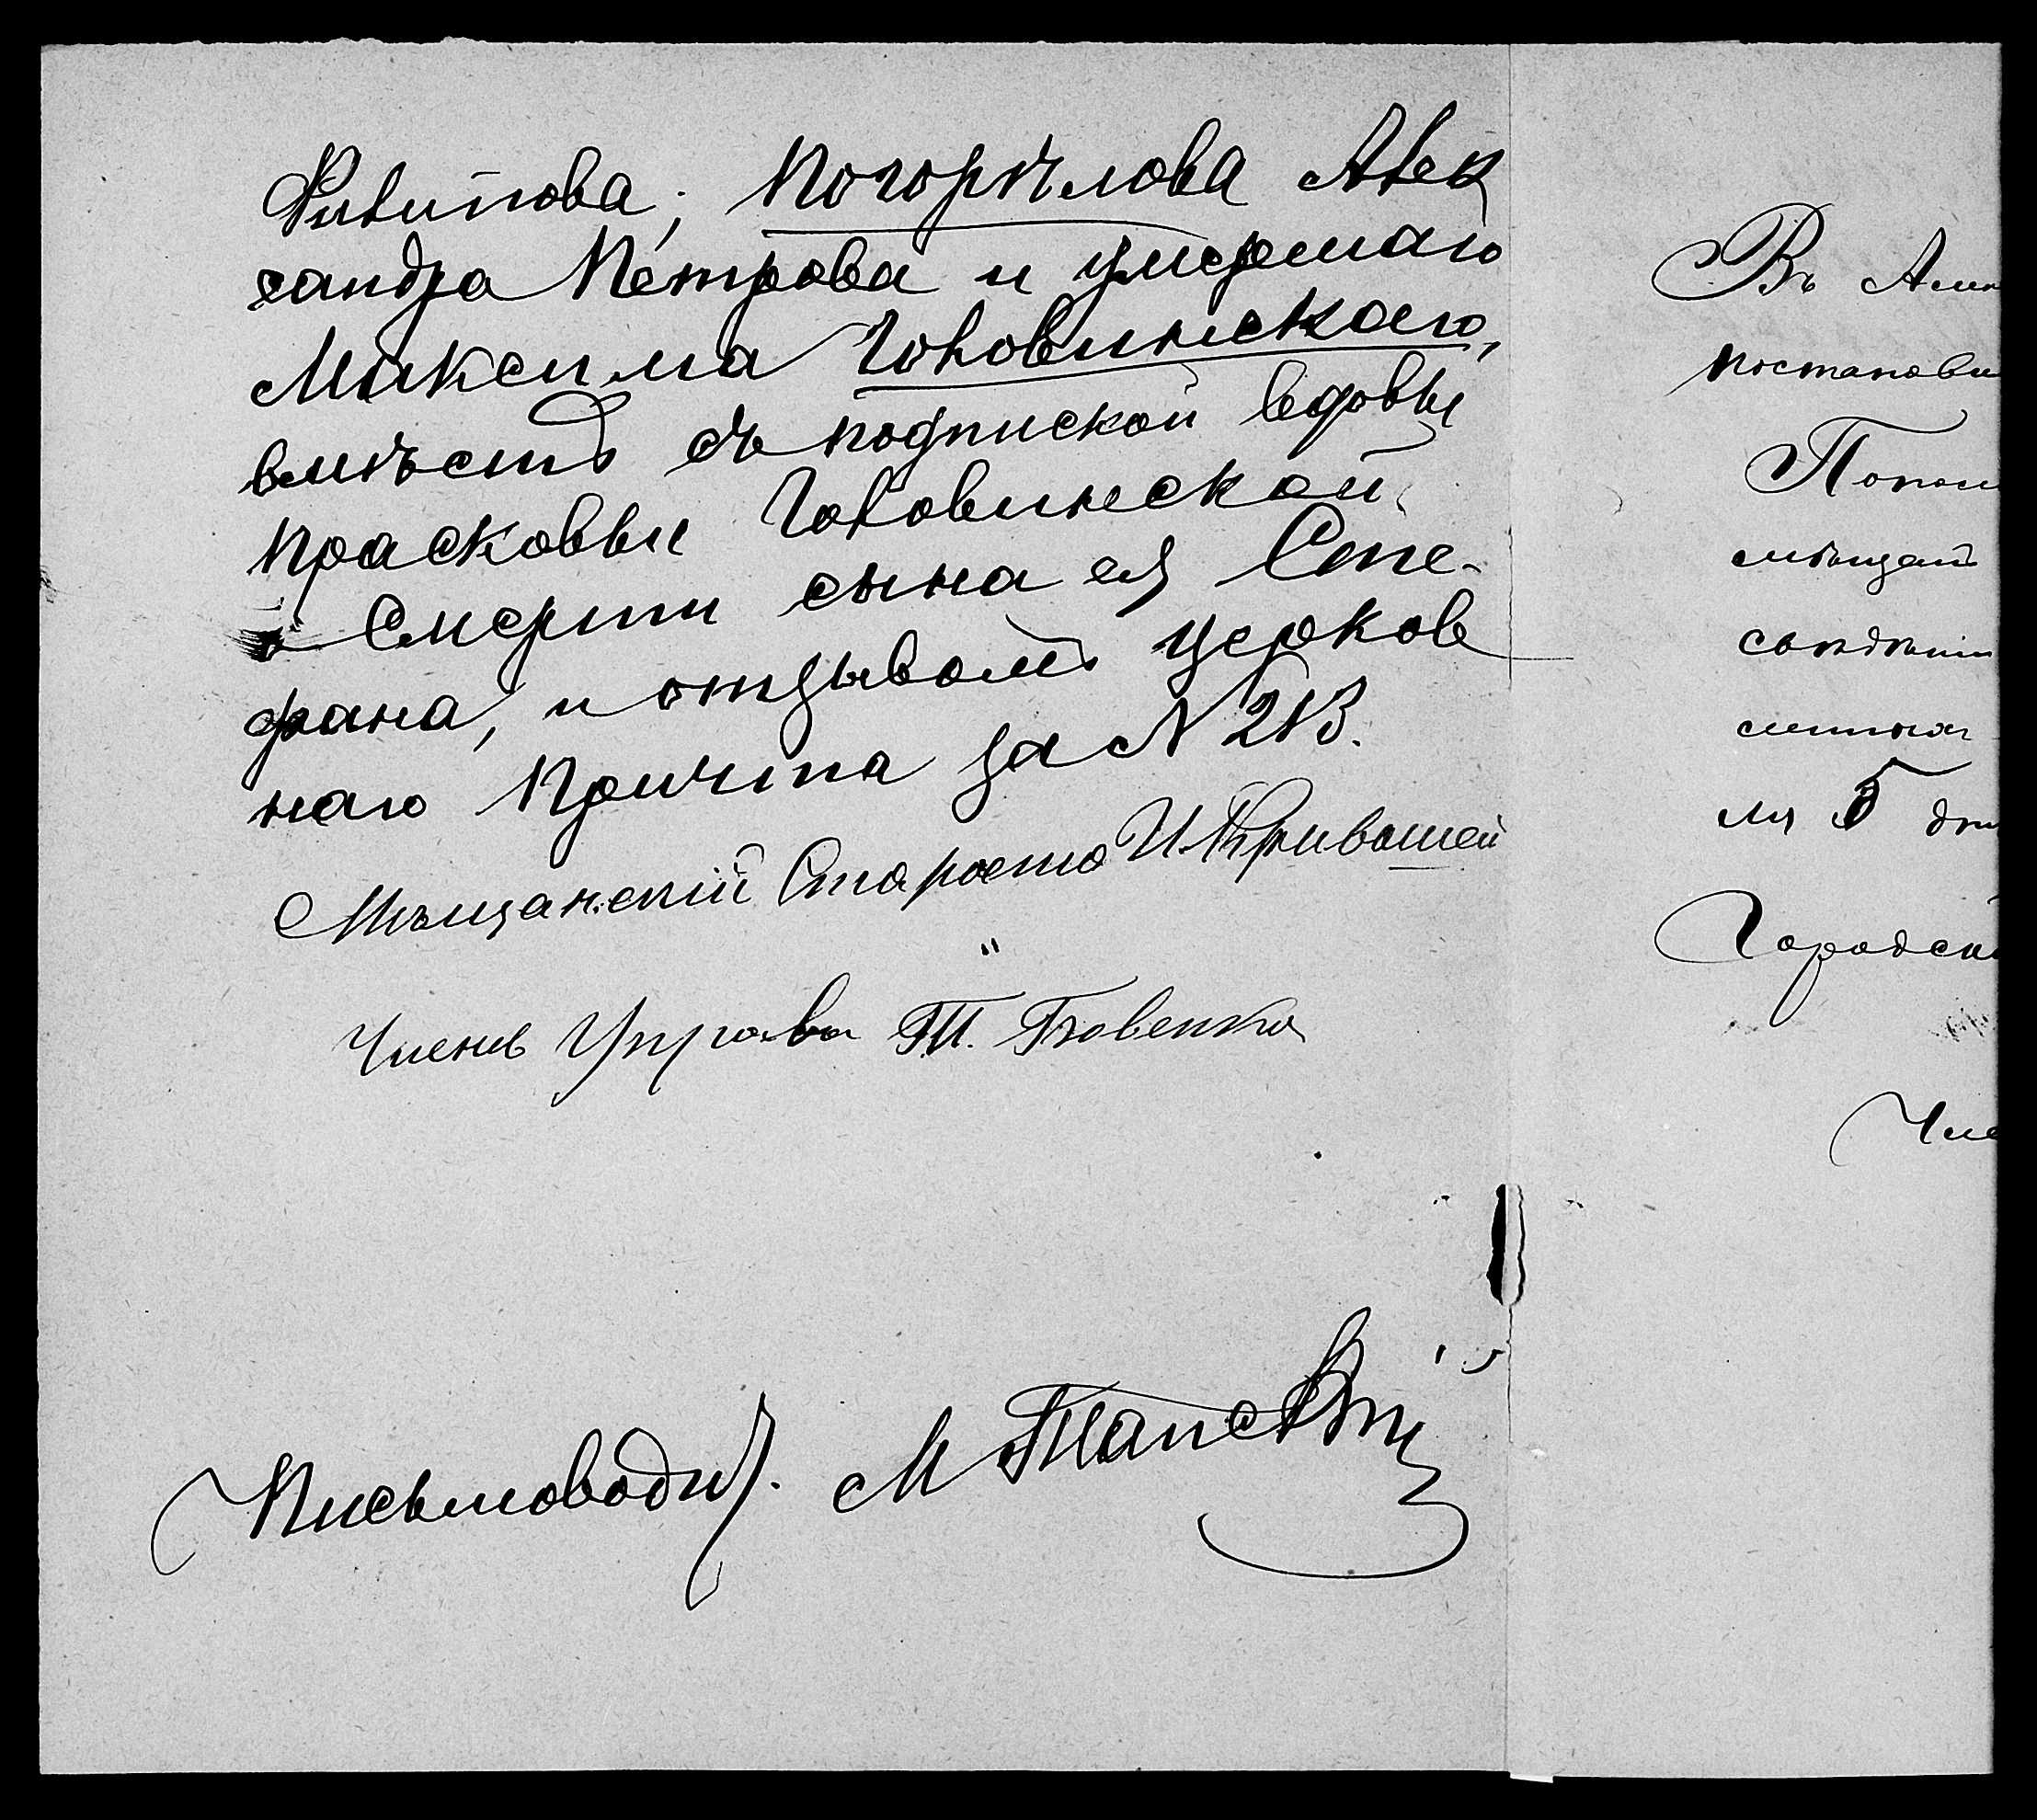 Филипова, Погорѣлова Алек
сандра Петрова и умершаго
Максима Головинскаго,
вмѣстѣ съ подпиской вдовы
Прасковьи Головинской
о Смерти сына ея Сте-
фана, и отзывомъ церков
наго Причта за N 213.
Мѣщанскій Староста И Кривошей
"
Членъ Управы Т.
Письмоводит. М
Въ
постанови
Попол
мѣщан
ля 5 дн
Городск
Чле